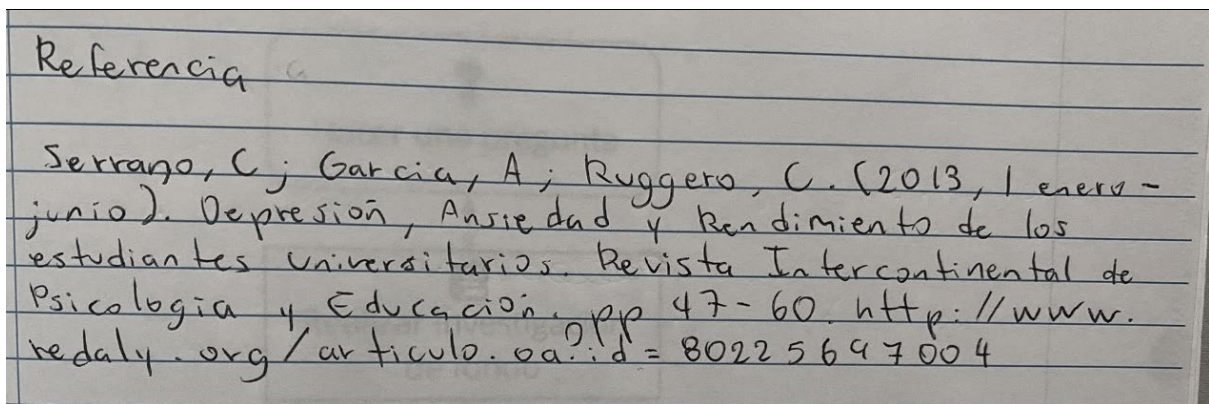 Referencia
Serrano, C; Garcia, A; Ruggero, C. (2013, 1 enero-
junio). Depresión, Ansiedad y Rendimiento de los
estudiantes universitarios. Revista Intercontinental de
Psicologia y Educación. pp 47-60. http://www.
redaly.org/articulo.oa?id=80225697004